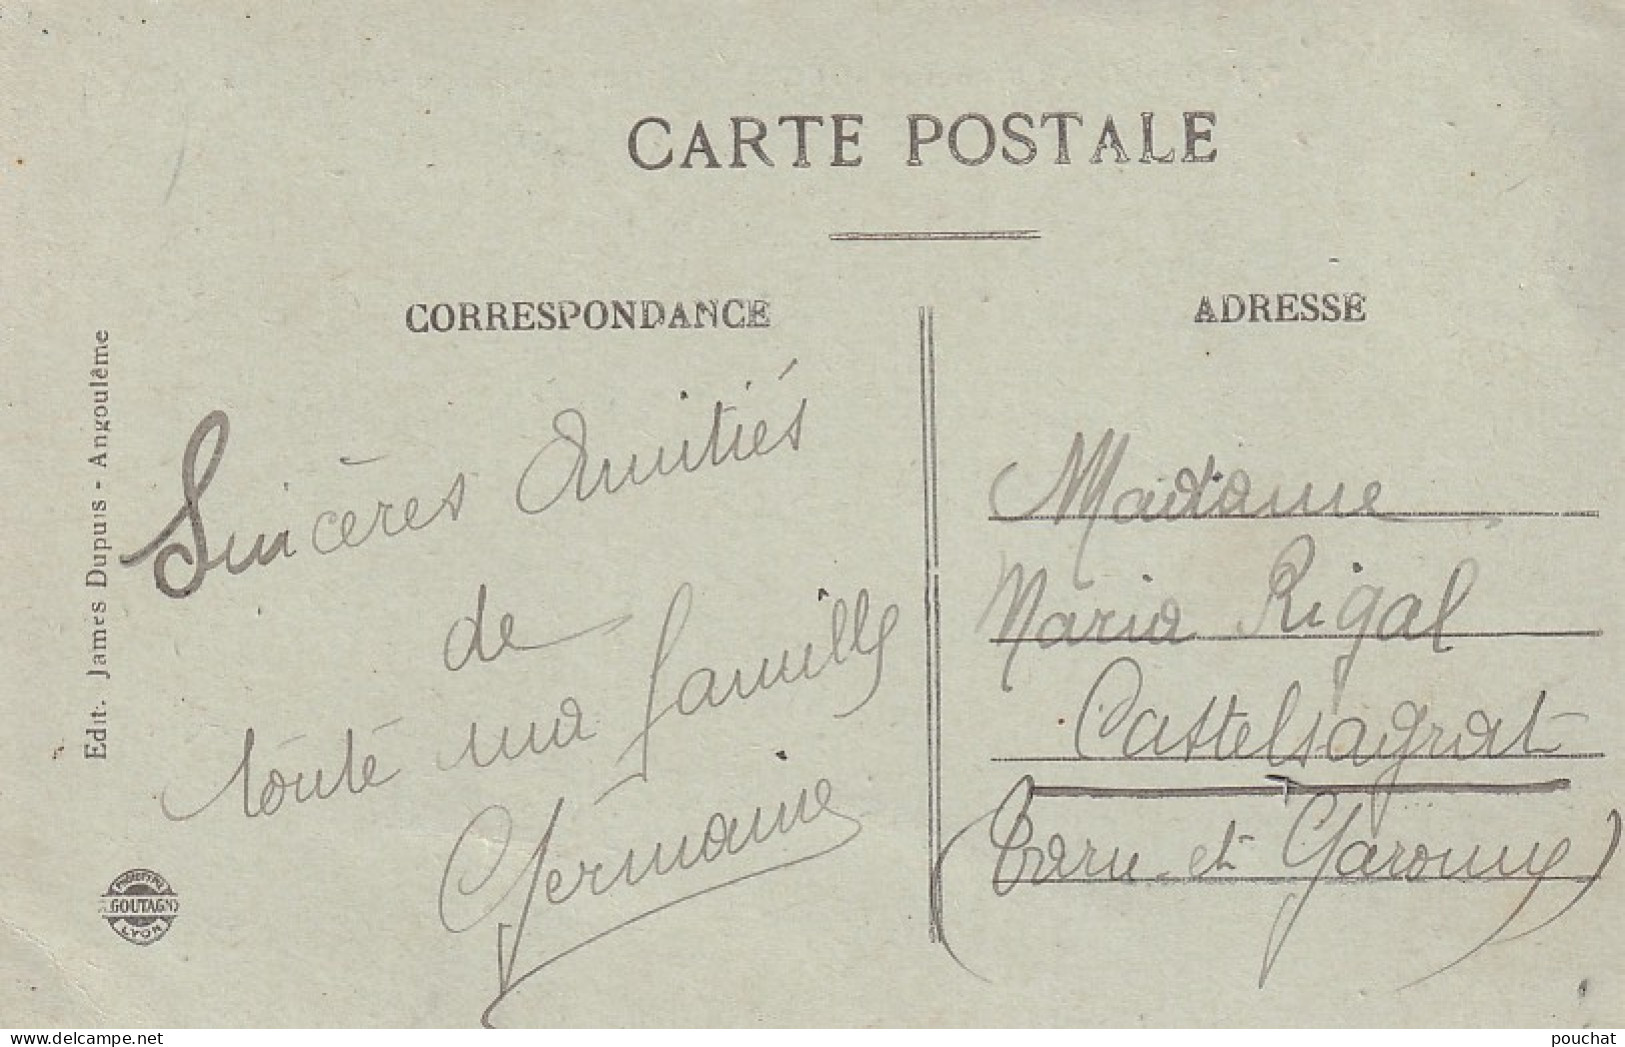 CARTE POSTALE
CORRESPONDANCE
ADRESSE
Edit. James Dupuis - Angoulême
Sincères Amitiés
de
toute ma famille
Germaine
PHOTOTYPIE
GOUTAGNY
LYON
Madame
Maria Rigal
Castelsagrat
(Tarn-et-Garonne)
delcampe.net
pouchat